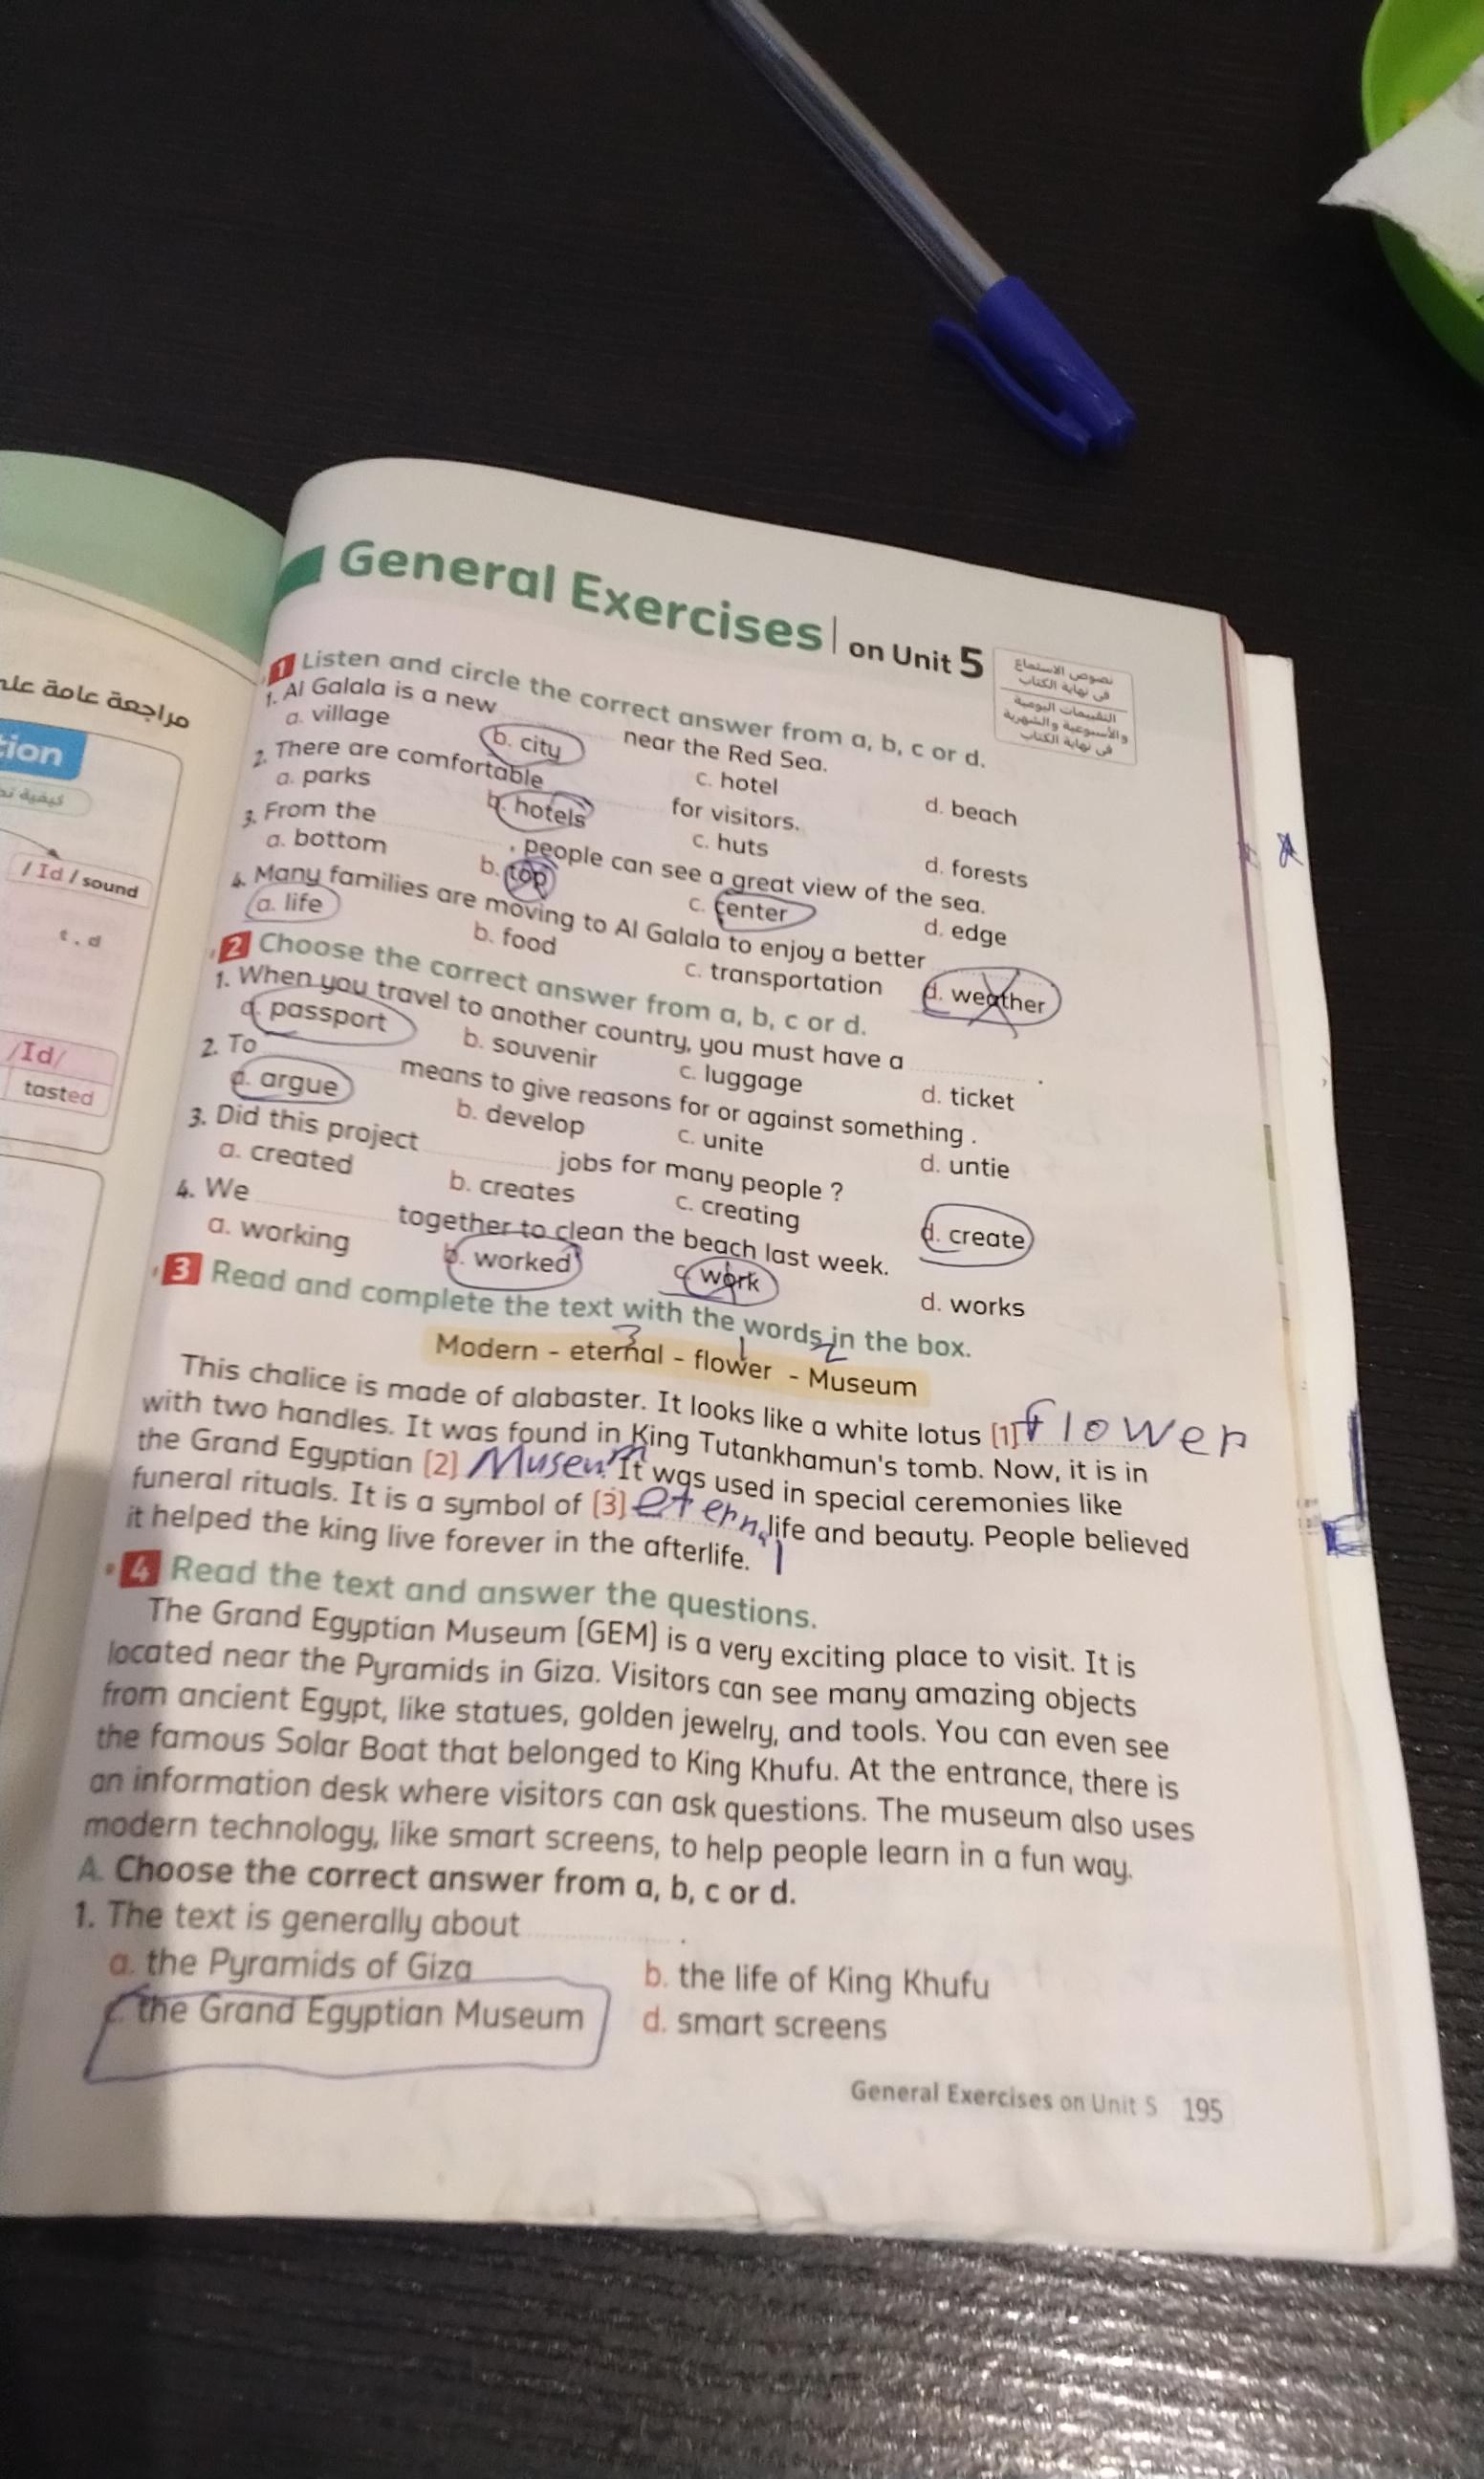 General Exercises on Unit 5
نصوص الاستماع
فى نهاية الكتاب
التقييمات اليومية
والأسبوعية والشهرية
فى نهاية الكتاب
1 Listen and circle the correct answer from a, b, c or d.
1. Al Galala is a new ............ near the Red Sea.
a. village b. city c. hotel d. beach
2. There are comfortable ............ for visitors.
a. parks b. hotels c. huts d. forests
3. From the ............, people can see a great view of the sea.
a. bottom b. top c. center d. edge
4. Many families are moving to Al Galala to enjoy a better .............
a. life b. food c. transportation d. weather
2 Choose the correct answer from a, b, c or d.
1. When you travel to another country, you must have a ............ .
a. passport b. souvenir c. luggage d. ticket
2. To ............ means to give reasons for or against something .
a. argue b. develop c. unite d. untie
3. Did this project ............ jobs for many people ?
a. created b. creates c. creating d. create
4. We ............ together to clean the beach last week.
a. working b. worked c. work d. works
3 Read and complete the text with the words in the box.
3 1 2
Modern - eternal - flower - Museum
This chalice is made of alabaster. It looks like a white lotus (1) flower
with two handles. It was found in King Tutankhamun's tomb. Now, it is in
the Grand Egyptian (2) Museum. It was used in special ceremonies like
funeral rituals. It is a symbol of (3) eternal life and beauty. People believed
it helped the king live forever in the afterlife.
4 Read the text and answer the questions.
The Grand Egyptian Museum (GEM) is a very exciting place to visit. It is
located near the Pyramids in Giza. Visitors can see many amazing objects
from ancient Egypt, like statues, golden jewelry, and tools. You can even see
the famous Solar Boat that belonged to King Khufu. At the entrance, there is
an information desk where visitors can ask questions. The museum also uses
modern technology, like smart screens, to help people learn in a fun way.
A. Choose the correct answer from a, b, c or d.
1. The text is generally about ............ .
a. the Pyramids of Giza b. the life of King Khufu
c. the Grand Egyptian Museum d. smart screens
General Exercises on Unit 5 195
مراجعة عامة
tion
كيفية
/ Id / sound
t . d
/Id/
tasted